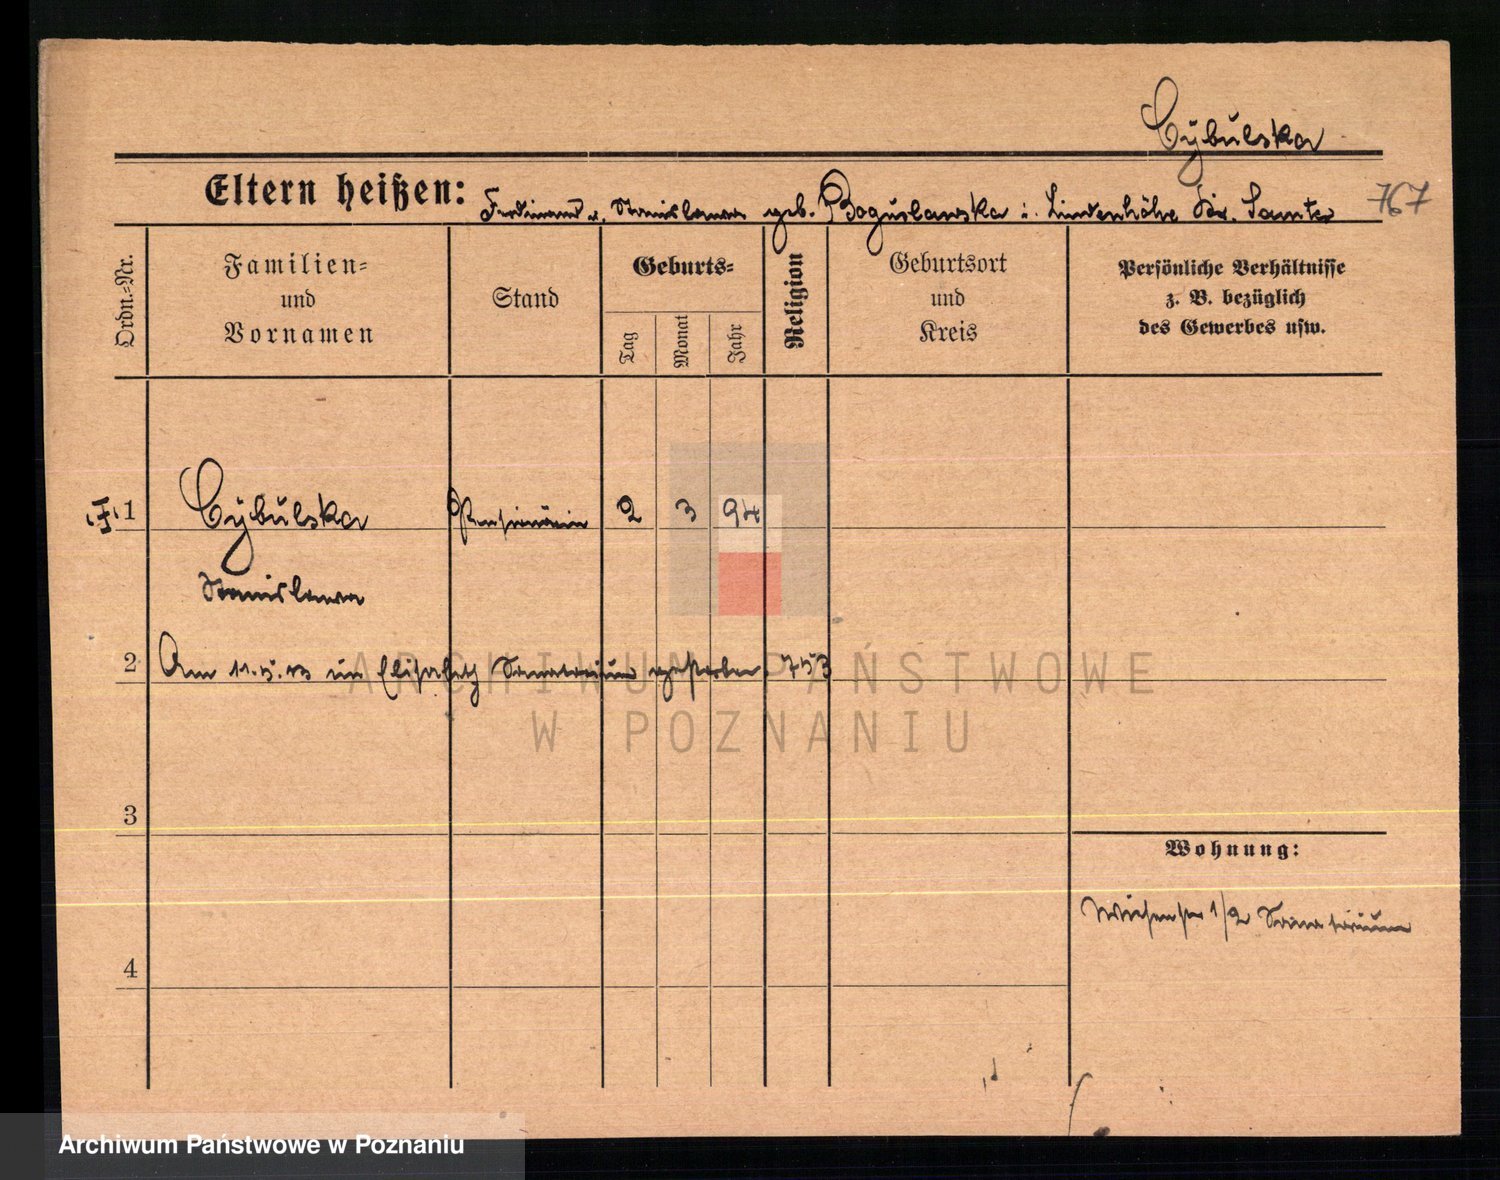 Cybulska
Eltern heißen: Ferdinand u. Stanislawa geb. Boguslawska i. Lindenhöhe Kr. Samter 767
Ordn.-Nr.
Familien-
und
Vornamen
Stand
Geburts-
Tag
Monat
Jahr
Religion
Geburtsort
und
Kreis
Persönliche Verhältnisse
z. B. bezüglich
des Gewerbes usw.
1 Cybulska Pensionärin 2 3 94
Stanislawa
2 Am 11.5.13 im Elisabeth Sanatorium gestorben. 753
ARCHIWUM PAŃSTWOWE
W POZNANIU
3
Wohnung:
Wiesenstr 1/2 Sanatorium
4
Archiwum Państwowe w Poznaniu